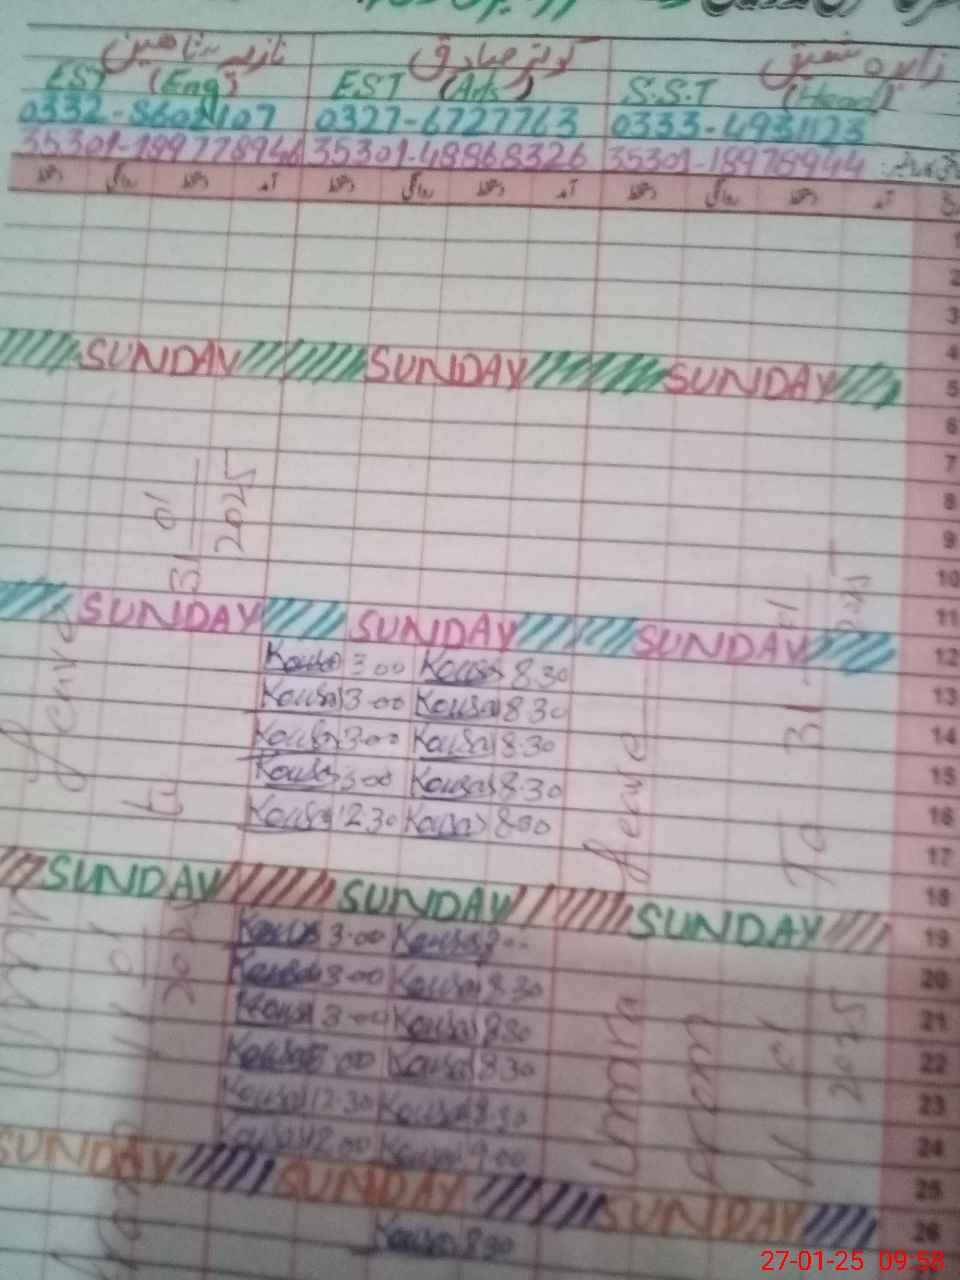 زاہدہ شفیق کوثر صادق نازیہ شاہین
EST (Eng) EST (Arts) S.S.T (Head)
0332-8602107 0327-6727763 0333-4931123
35301-189778946 35301-48868326 35301-18978944
آمد دستخط روانگی دستخط آمد دستخط روانگی دستخط آمد دستخط روانگی دستخط
1
2
3
4
SUNDAY SUNDAY SUNDAY 5
6
7
8
9
10
11
SUNDAY SUNDAY SUNDAY 12
Kousar 3.00 Kousar 8.30 13
Kousar 3.00 Kousar 8.30 14
Kousar 3.00 Kousar 8.30 15
Kousar 3.00 Kousar 8.30 16
Kousar 12.30 Kousar 8.00 17
18
SUNDAY SUNDAY SUNDAY 19
Kousar 3.00 Kousar 20
Kousar 3.00 Kousar 8.30 21
Kousar 3.00 Kousar 8.30 22
Kousar 3.00 Kousar 8.30 23
Kousar 12.30 Kousar 8.30 24
Kousar 12.00 Kousar 9.00 25
SUNDAY SUNDAY SUNDAY 26
Kousar 8.30
Ummra
From
11 01 2025
To 31 01 2025
leave
Ummra
11 01 2025
To 31 01 2025
leave
27-01-25 09:58